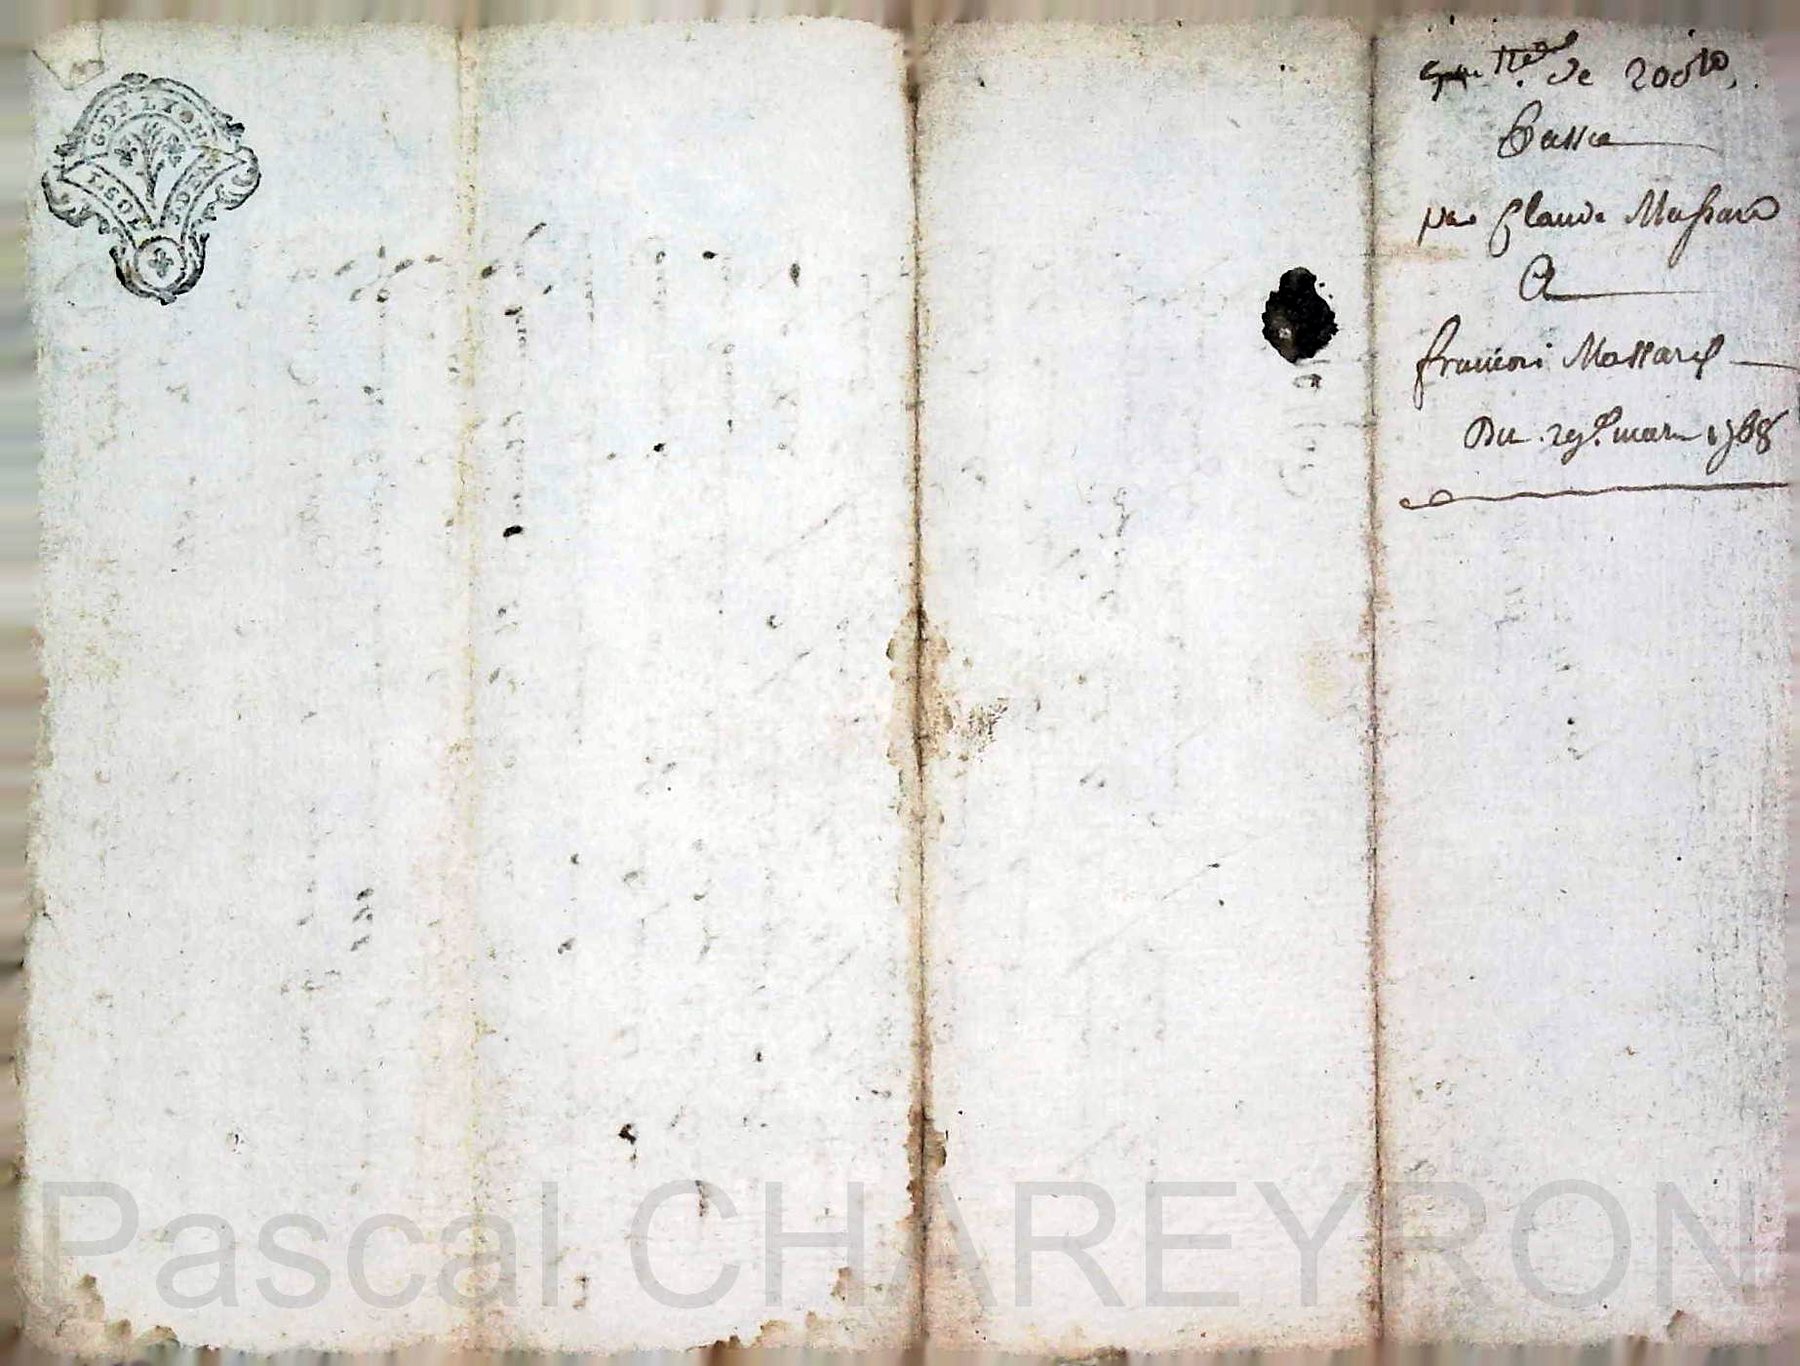 G. DE LYON
1. SOL 4. DEN
de 200 tt
Passée
par Claude Massard
A
francois Massard
Du 29e. mars 1768
Pascal CHAREYRON